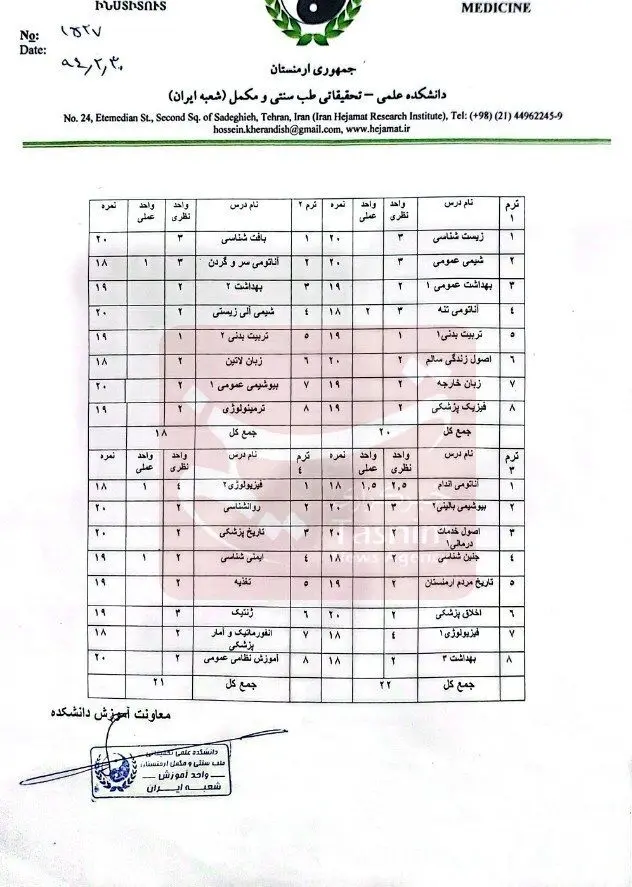 ԻՆՍՏԻՏՈՒՏ
MEDICINE
No: ۱۵۲۷
Date: ۹۴,۲,۳۰
جمهوری ارمنستان
دانشکده علمی – تحقیقاتی طب سنتی و مکمل (شعبه ایران)
No. 24, Etemedian St., Second Sq. of Sadeghieh, Tehran, Iran (Iran Hejamat Research Institute), Tel: (+98) (21) 44962245-9
hossein.kherandish@gmail.com, www.hejamat.ir
ترم ۱ نام درس واحد نظری واحد عملی نمره ترم ۲ نام درس واحد نظری واحد عملی نمره
۱ زیست شناسی ۳ ۲۰ ۱ بافت شناسی ۳ ۲۰
۲ شیمی عمومی ۳ ۲۰ ۲ آناتومی سر و گردن ۳ ۱ ۱۸
۳ بهداشت عمومی ۱ ۲ ۱۹ ۳ بهداشت ۲ ۲ ۱۹
۴ آناتومی تنه ۳ ۲ ۱۸ ۴ شیمی آلی زیستی ۲ ۲۰
۵ تربیت بدنی۱ ۱ ۱۹ ۵ تربیت بدنی ۲ ۱ ۱۹
۶ اصول زندگی سالم ۲ ۲۰ ۶ زبان لاتین ۲ ۱۸
۷ زبان خارجه ۲ ۱۹ ۷ بیوشیمی عمومی ۱ ۲ ۲۰
۸ فیزیک پزشکی ۲ ۱۹ ۸ ترمینولوژی ۲ ۱۹
جمع کل ۲۰ جمع کل ۱۸
ترم ۳ نام درس واحد نظری واحد عملی نمره ترم ۴ نام درس واحد نظری واحد عملی نمره
۱ آناتومی اندام ۲,۵ ۱,۵ ۱۸ ۱ فیزیولوژی۲ ۴ ۱ ۱۸
۲ بیوشیمی بالینی۲ ۳ ۱ ۲۰ ۲ روانشناسی ۲ ۲۰
۳ اصول خدمات درمانی۱ ۲ ۲۰ ۳ تاریخ پزشکی ۲ ۲۰
۴ جنین شناسی ۲ ۱۸ ۴ ایمنی شناسی ۲ ۱ ۱۹
۵ تاریخ مردم ارمنستان ۲ ۱۹ ۵ تغذیه ۲ ۱۹
۶ اخلاق پزشکی ۲ ۲۰ ۶ ژنتیک ۳ ۱۹
۷ فیزیولوژی۱ ۴ ۱۸ ۷ انفورماتیک و آمار پزشکی ۲ ۱۸
۸ بهداشت ۳ ۲ ۱۸ ۸ آموزش نظامی عمومی ۲ ۲۰
جمع کل ۲۲ جمع کل ۲۱
Tasnim
News Agency
معاونت آموزش دانشکده
دانشکده علمی تحقیقاتی
طب سنتی و مکمل ارمنستان
واحد آموزش
شعبه ایران